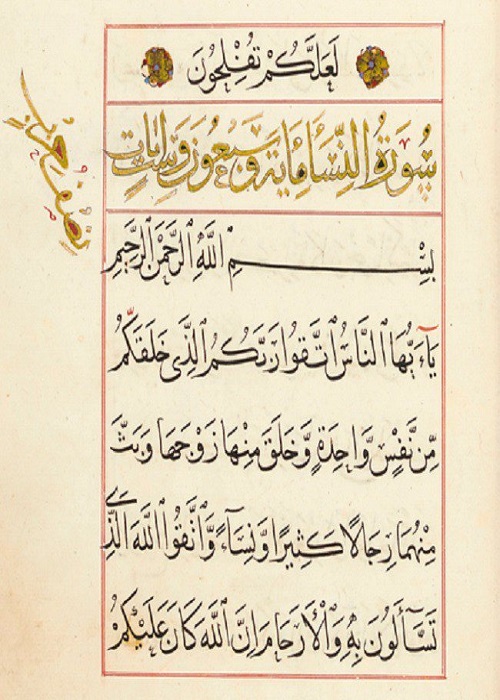 لَعَلَّكُمْ تُفْلِحُونَ
سُورَةُ النِّسَاءِ مِايَةٌ وَسَبْعُونَ وَسِتُّ اٰيَاتٍ
بِسْمِ اللَّهِ الرَّحْمٰنِ الرَّحِيمِ
يَآءَيُّهَا ٱلنَّاسُ ٱتَّقُوا رَبَّكُمُ ٱلَّذِى خَلَقَكُمْ
مِّن نَّفْسٍ وَّاحِدَةٍ وَّخَلَقَ مِنْهَا زَوْجَهَا وَبَثَّ
مِنْهُمَا رِجَالًا كَثِيرًا وَّنِسَآءً وَّٱتَّقُوا ٱللَّهَ ٱلَّذِى
تَسَّآءَلُونَ بِهِ وَٱلْأَرْحَامَ إِنَّ ٱللَّهَ كَانَ عَلَيْكُمْ
نصف حزب